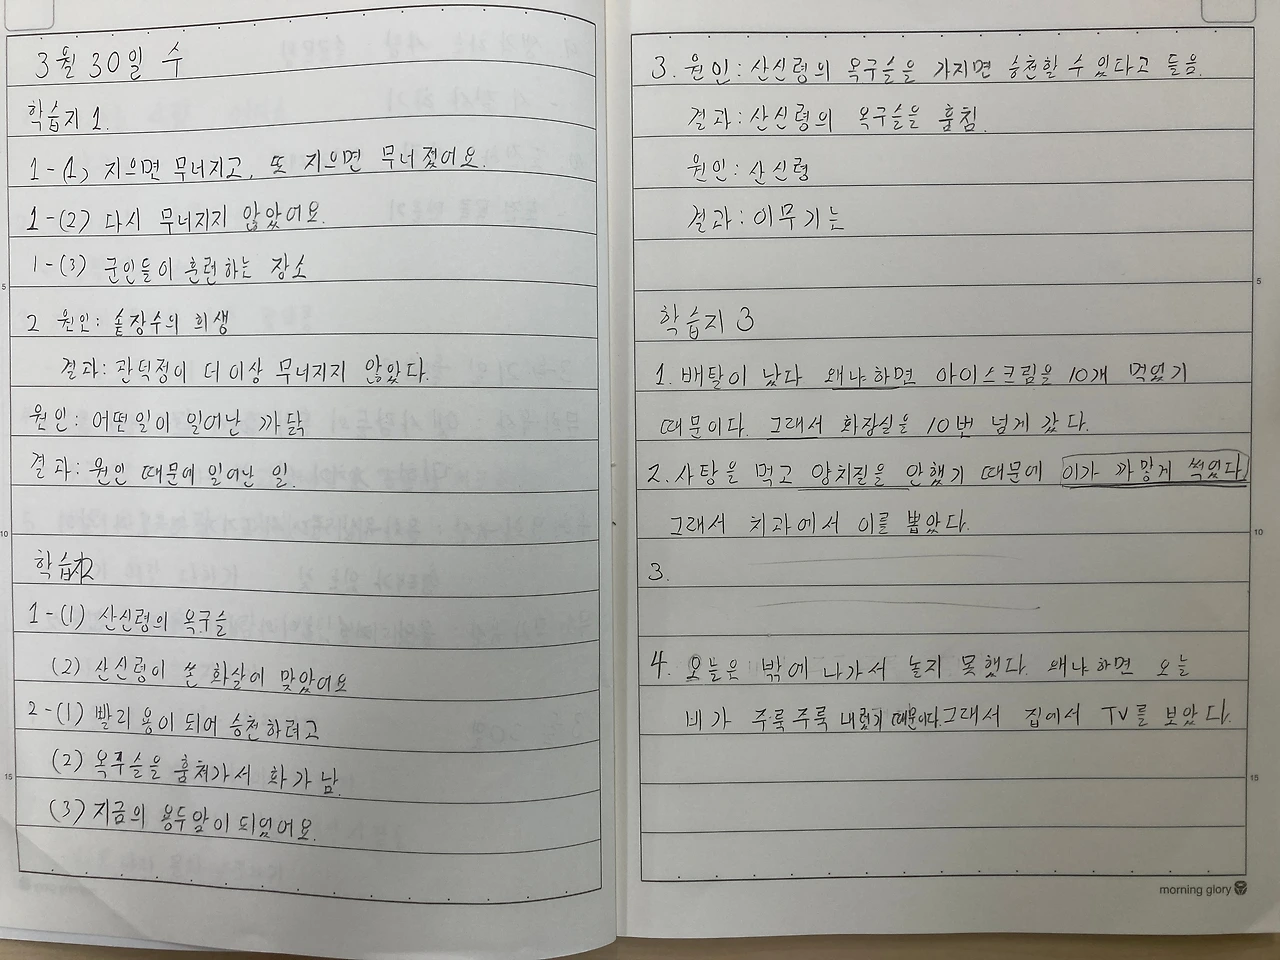 3월 30일 수
학습지 1.
1-(1) 지으면 무너지고, 또 지으면 무너졌어요.
1-(2) 다시 무너지지 않았어요.
1-(3) 군인들이 훈련하는 장소
5
2 원인: 솥장수의 희생
결과: 관덕정이 더 이상 무너지지 않았다.
원인: 어떤일이 일어난 까닭
결과: 원인 때문에 일어난 일.
10
학습지2
1-(1) 산신령의 옥구슬
(2) 산신령이 쏜 화살에 맞았어요
2-(1) 빨리 용이 되어 승천하려고
(2) 옥구슬을 훔쳐가서 화가 남.
15
(3) 지금의 용두암이 되었어요.
3. 원인: 산신령의 옥구슬을 가지면 승천할 수 있다고 들음.
결과: 산신령의 옥구슬을 훔침.
원인: 산신령
결과: 이무기는
5
학습지 3
1. 배탈이 났다 왜냐하면 아이스크림을 10개 먹었기
때문이다. 그래서 화장실을 10번 넘게 갔다.
2. 사탕을 먹고 양치질을 안했기 때문에 이가 까맣게 썩었다.
그래서 치과에서 이를 뽑았다.
10
3.
4. 오늘은 밖에 나가서 놀지 못했다. 왜냐하면 오늘
비가 주룩주룩 내렸기 때문이다. 그래서 집에서 TV를 보았다.
15
morning glory